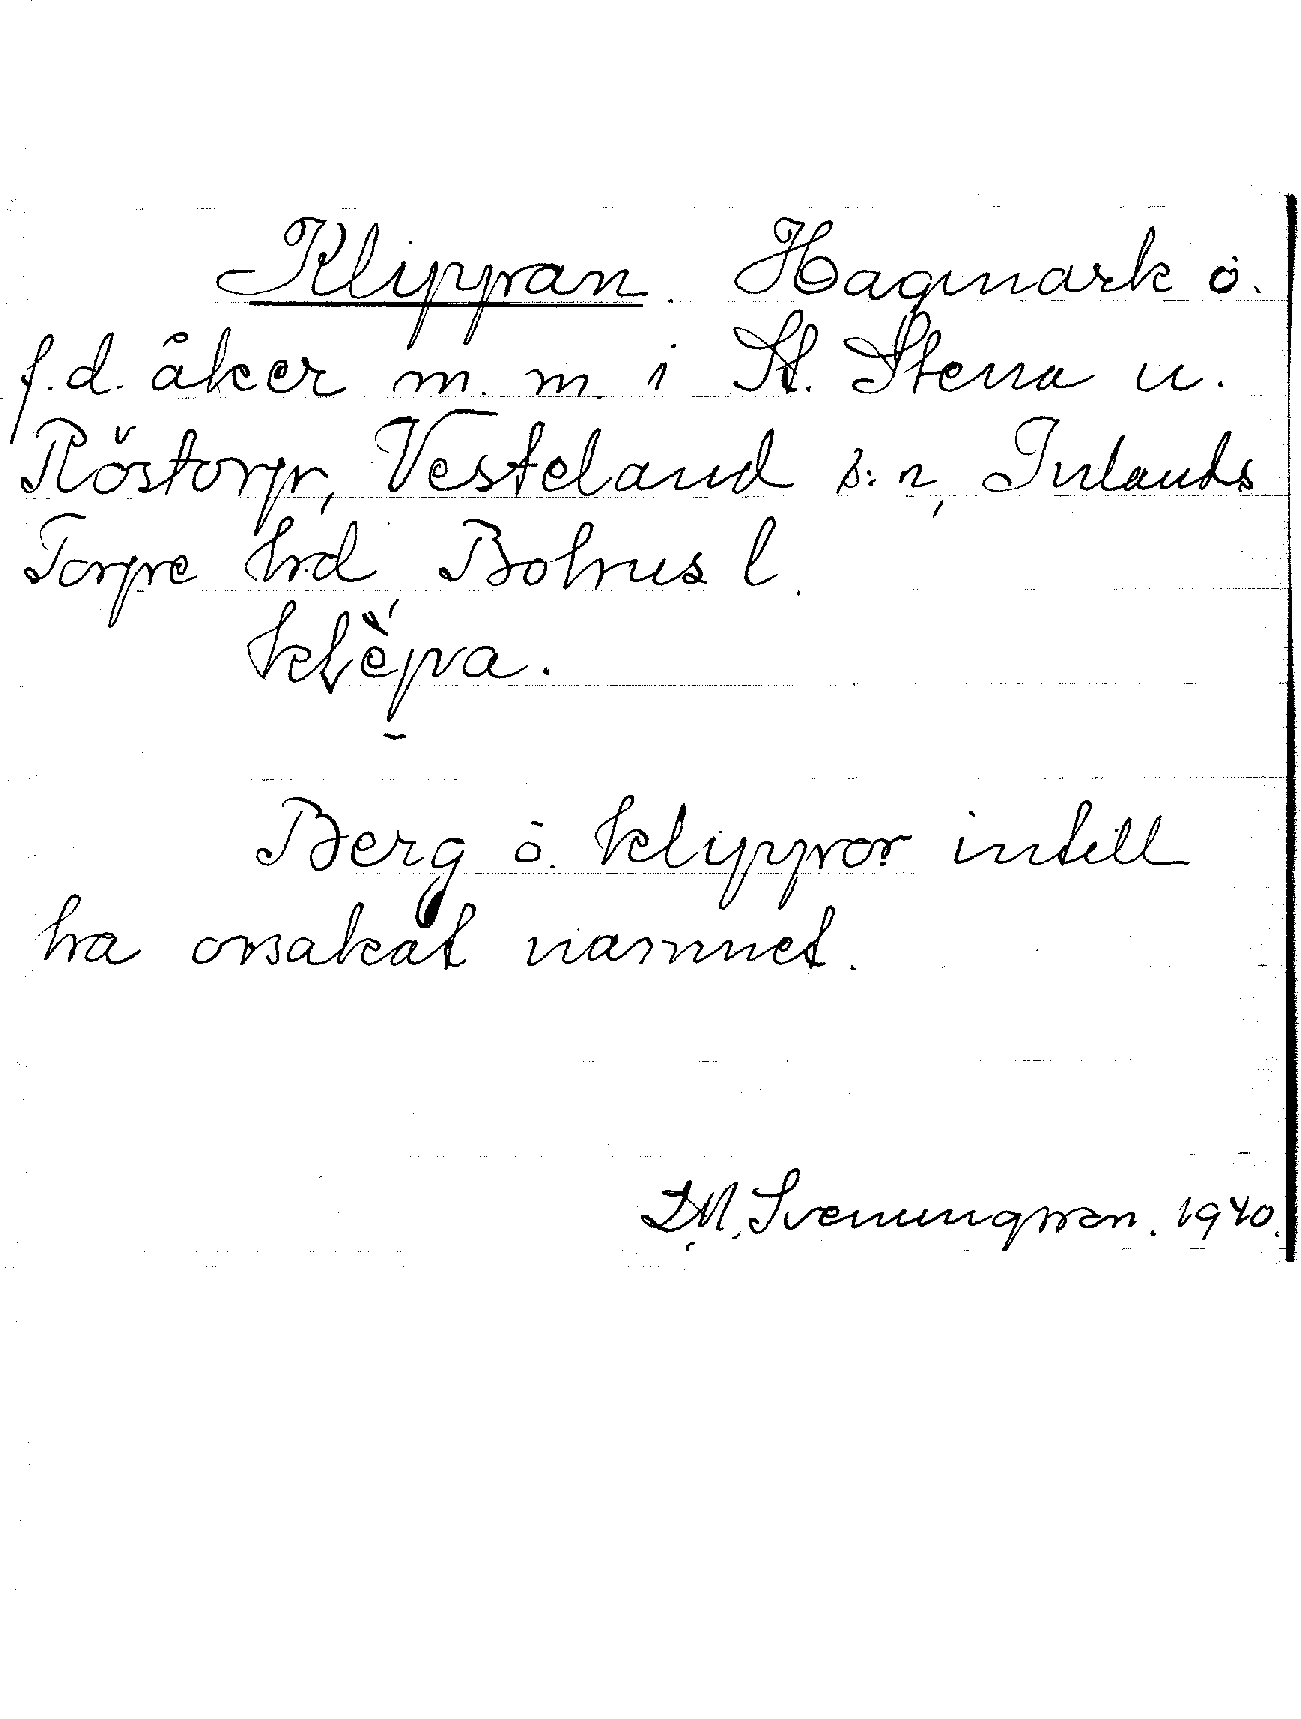 Klippan. Hagmark o.
f.d. åker m. m. i St. Stena u.
Röstorp, Vesteland s:n, Inlands
Torpe hrd Bohus l.
klèpa.
Berg o. klippor intill
ha orsakat namnet.
D.M. Svenungsson. 1940.